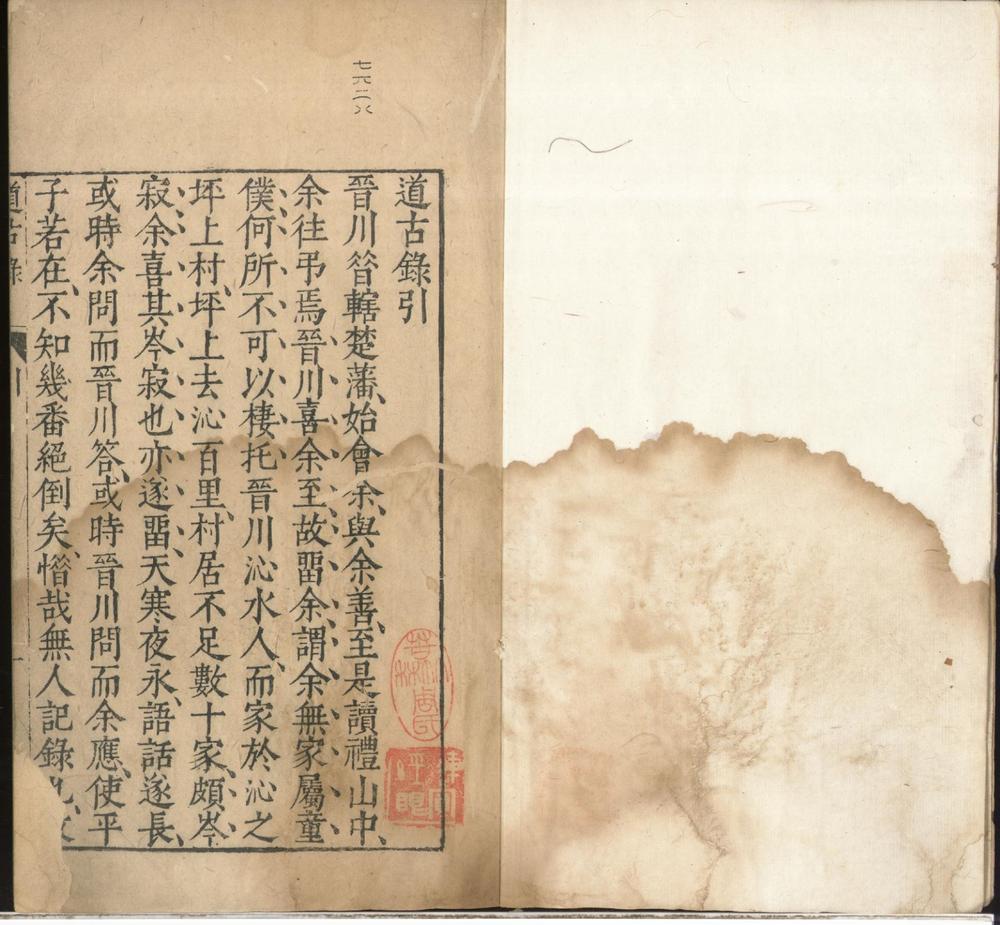 道古錄引
晉川昝轄楚藩始會余與余善至是讀禮山中
余往弔焉晉川喜余至故畱余謂余無家屬童
僕何所不可以棲托晉川沁水人而家於沁之
坪上村坪上去沁百里村居不足數十家頗岑
寂余喜其岑寂也亦遂畱天寒夜永語話遂長
或時余問而晉川答或時晉川問而余應使平
子若在不知幾番絕倒矣惜哉無人記錄也
道古錄
引
一